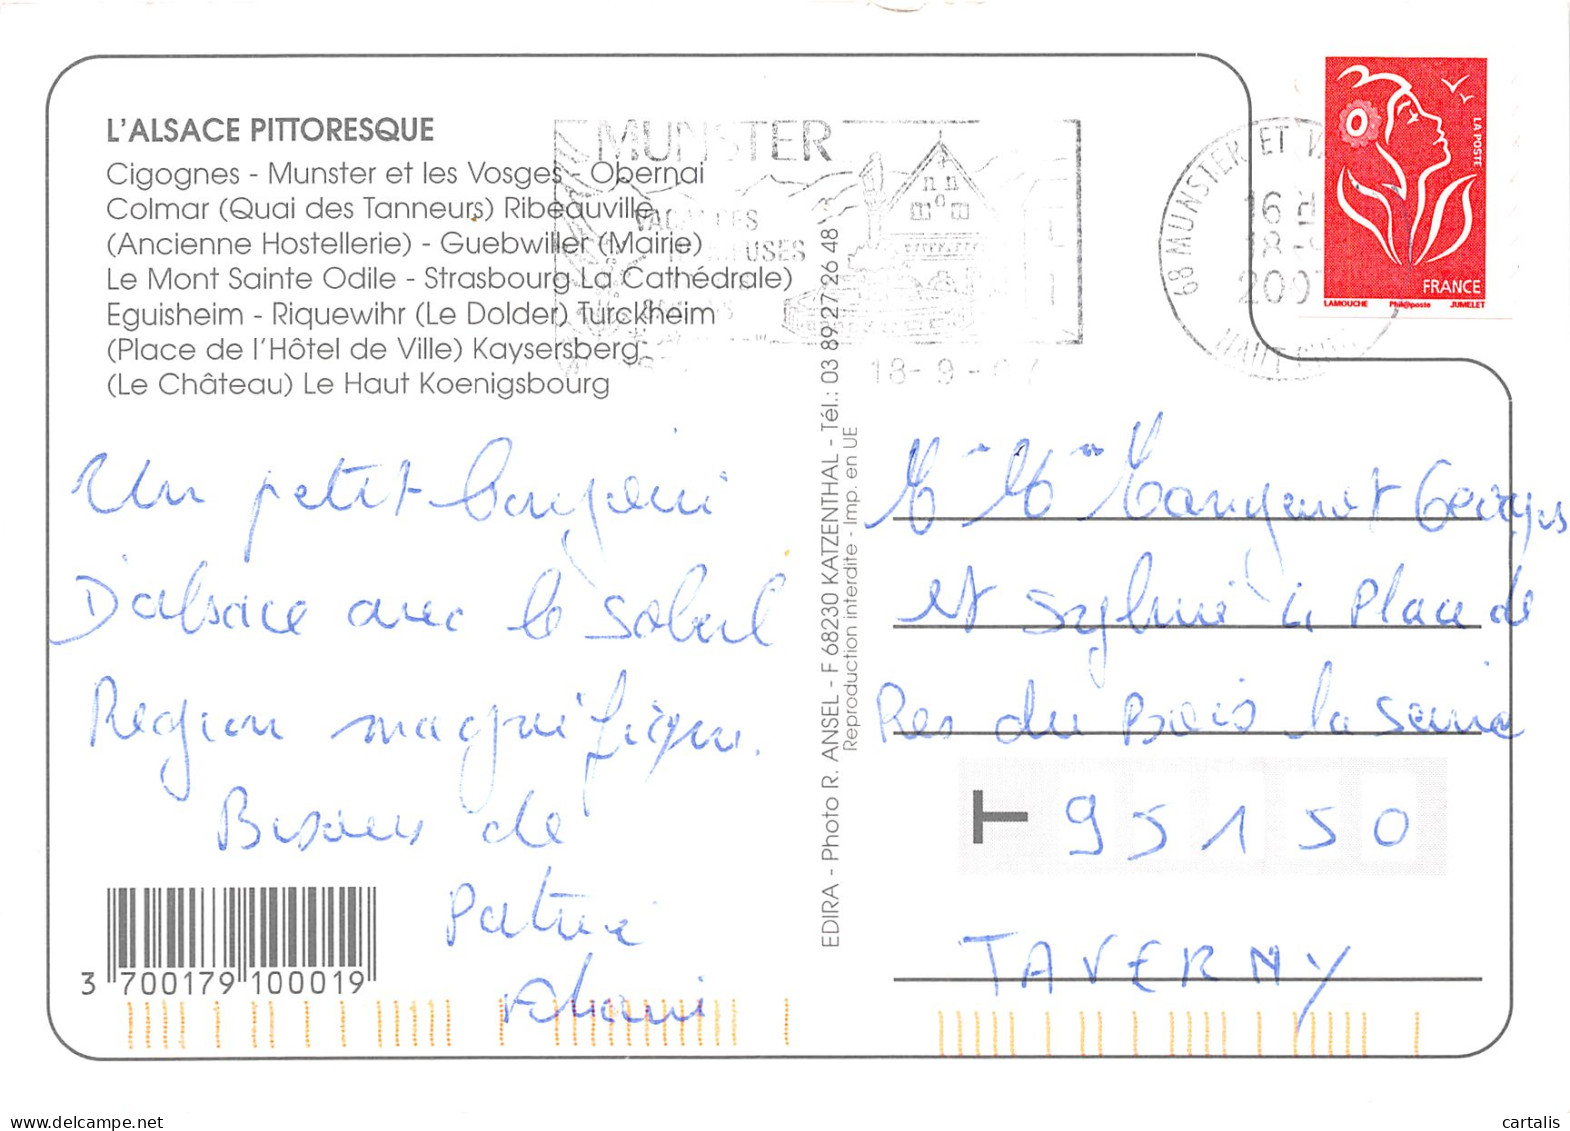 L'ALSACE PITTORESQUE
Cigognes - Munster et les Vosges - Obernai
Colmar (Quai des Tanneurs) Ribeauvillé
(Ancienne Hostellerie) - Guebwiller (Mairie)
Le Mont Sainte Odile - Strasbourg La Cathédrale)
Eguisheim - Riquewihr (Le Dolder) Turckheim
(Place de l'Hôtel de Ville) Kaysersberg
(Le Château) Le Haut Koenigsbourg
MUNSTER
18-9-07
68 MUNSTER ET
16 H
2007
LA POSTE
FRANCE
LAMOUCHE Phil@poste JUMELET
Un petit bonjour
D'alsace avec le soleil
Region magnifique.
Bisous de
Patrice
3 700179 100019
EDIRA - Photo R. ANSEL - F 68230 KATZENTHAL - Tél.: 03 89 27 26 48
Reproduction interdite - Imp. en UE
Mr Mme Mangenot Georges
et Sylvie 4 Place de
Res du Bois la Seine
T 95150
TAVERNY
cartalis